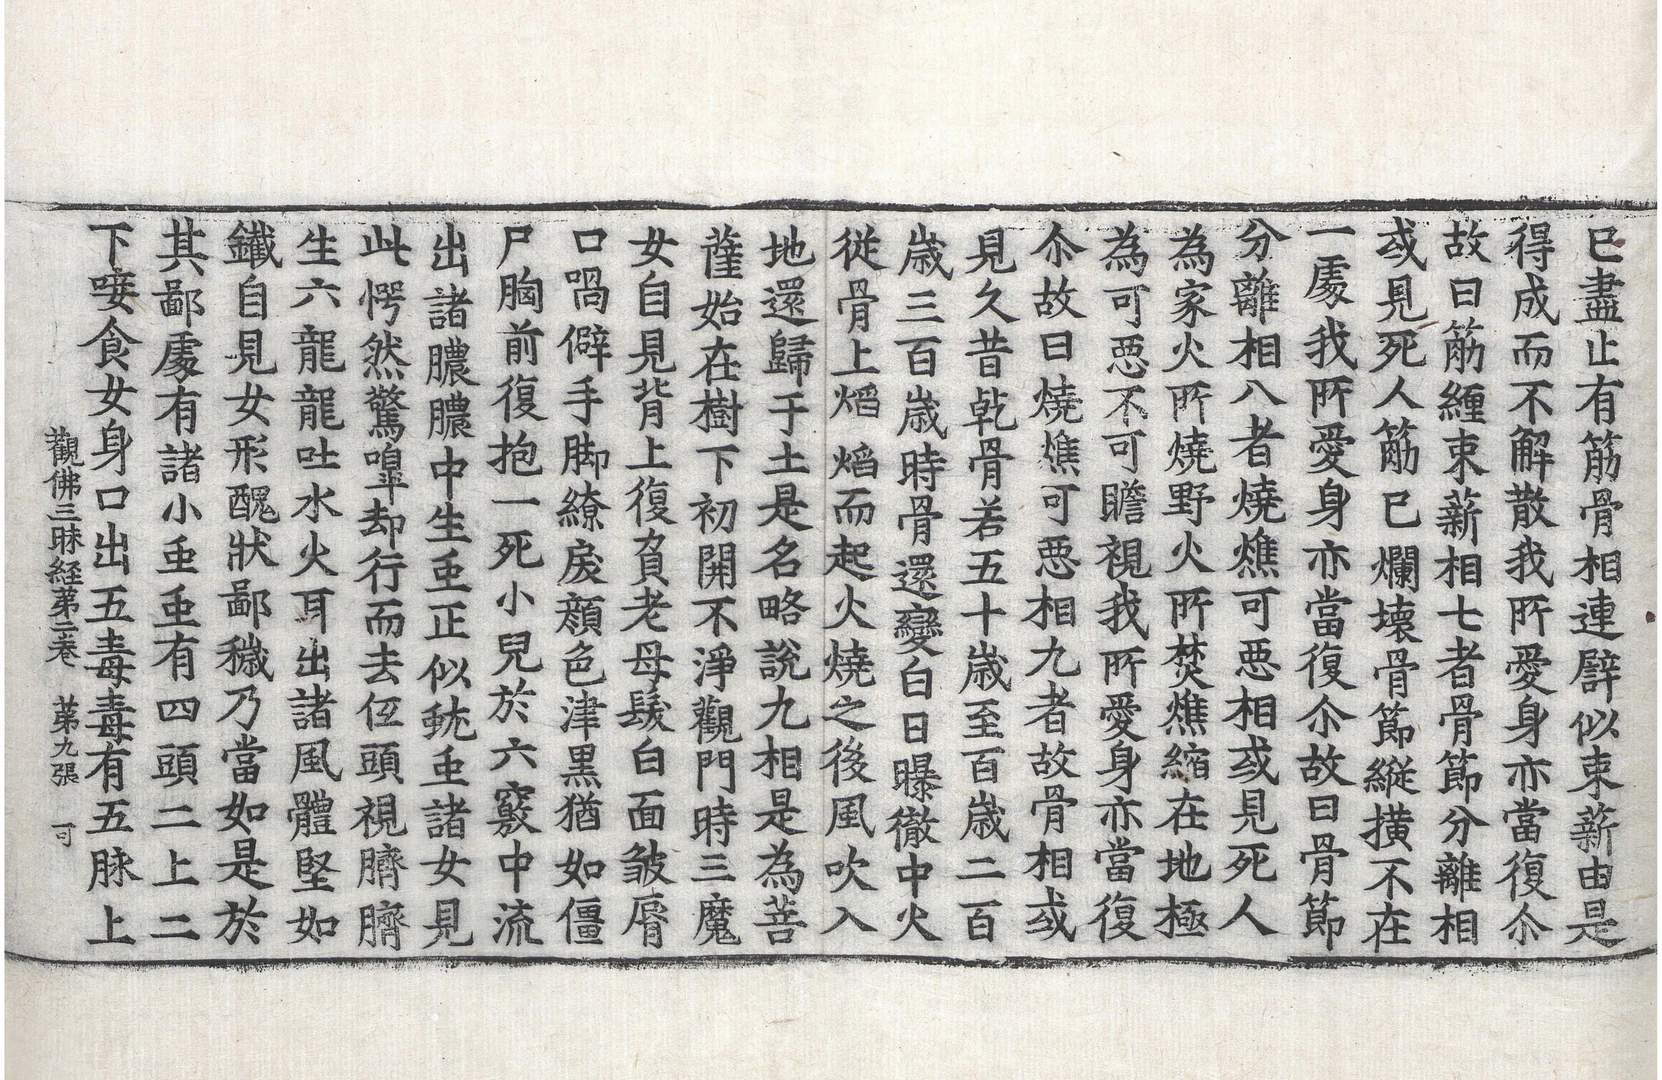 已盡止有筋骨相連譬似束薪由是
得成而不解散我所愛身亦當復尒
故曰筋纏束薪相七者骨節分離相
或見死人筋已爛壞骨節縱橫不在
一處我所愛身亦當復尒故曰骨節
分離相八者燒燋可惡相或見死人
為家火所燒野火所焚燋縮在地極
為可惡不可瞻視我所愛身亦當復
尒故曰燒燋可惡相九者故骨相或
見久昔乾骨若五十歲至百歲二百
歲三百歲時骨還變白日曝徹中火
從骨上焰焰而起火燒之後風吹入
地還歸于土是名略說九相是為菩
薩始在樹下初開不淨觀門時三魔
女自見背上復負老母髮白面皺脣
口喎僻手脚繚戾顏色津黑猶如僵
尸胸前復抱一死小兒於六竅中流
出諸膿膿中生䖝正似蚘䖝諸女見
此愕然驚嘷却行而去伍頭視臍臍
生六龍龍吐水火耳出諸風體堅如
鐵自見女形醜狀鄙穢乃當如是於
其鄙處有諸小䖝䖝有四頭二上二
下唼食女身口出五毒毒有五脉上
觀佛三昧經苐二卷 苐九張 可